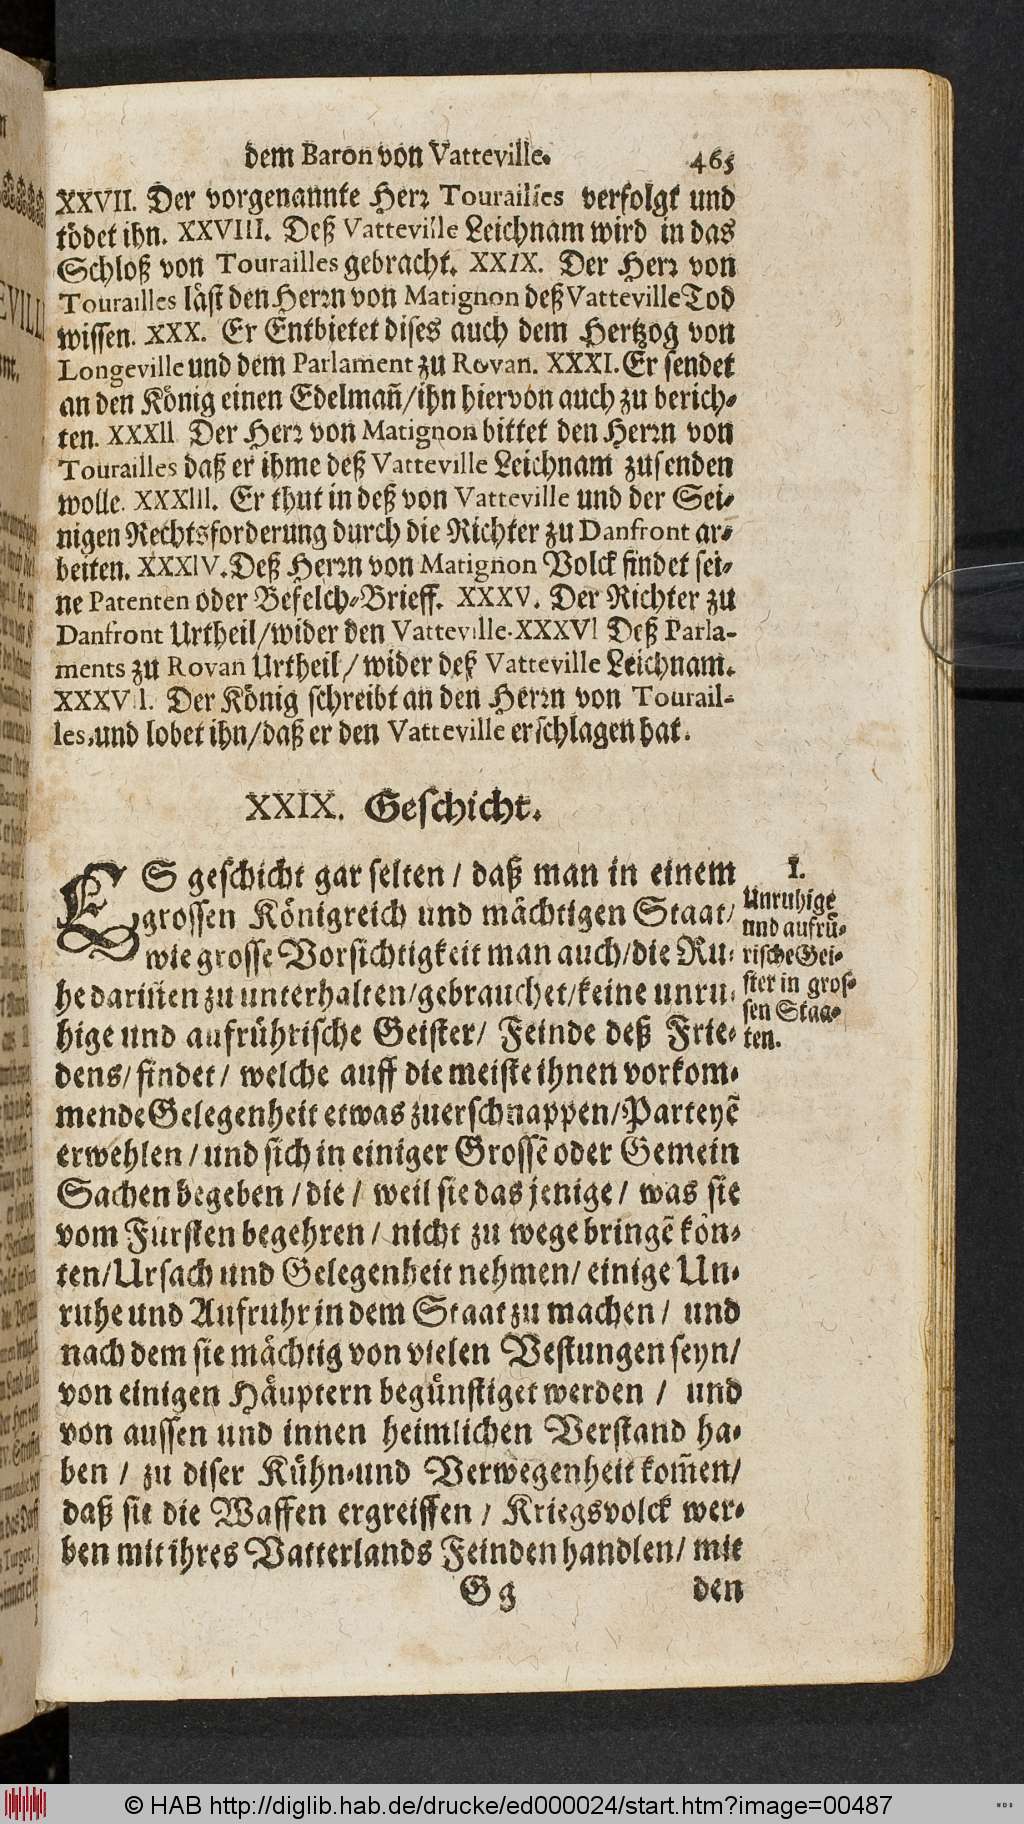 dem Baron von Vatteville. 465
XXVII. Der vorgenannte Herꝛ Tourailles verfolgt und
tödet ihn. XXVIII. Deß Vatteville Leichnam wird in das
Schloß von Tourailles gebracht. XXIX. Der Herꝛ von
Tourailles läst den Herꝛn von Matignon deß Vatteville Tod
wissen. XXX. Er Entbietet dises auch dem Hertzog von
Longeville und dem Parlament zu Rovan. XXXI. Er sendet
an den König einen Edelmañ/ihn hiervon auch zu berich-
ten. XXXII Der Herꝛ von Matignon bittet den Herꝛn von
Tourailles daß er ihme deß Vatteville Leichnam zusenden
wolle. XXXIII. Er thut in deß von Vatteville und der Sei-
nigen Rechtsforderung durch die Richter zu Danfront ar-
beiten. XXXIV. Deß Herꝛn von Matignon Volck findet sei-
ne Patenten oder Befelch-Brieff. XXXV. Der Richter zu
Danfront Urtheil/wider den Vatteville. XXXVI Deß Parla-
ments zu Rovan Urtheil/ wider deß Vatteville Leichnam.
XXXVII. Der König schreibt an den Herꝛn von Tourail-
les, und lobet ihn/daß er den Vatteville erschlagen hat.
XXIX. Geschicht.
ES geschicht gar selten / daß man in einem
grossen Königreich und mächtigen Staat/
wie grosse Vorsichtigkeit man auch/die Ru-
he dariñen zu unterhalten/gebrauchet/keine unru-
hige und aufrührische Geister/ Feinde deß Frie-
dens/ findet/ welche auff die meiste ihnen vorkom-
mende Gelegenheit etwas zuerschnappen/Parteyẽ
erwehlen / und sich in einiger Grossẽ oder Gemein
Sachen begeben / die / weil sie das jenige / was sie
vom Fürsten begehren / nicht zu wege bringẽ kön-
ten/Ursach und Gelegenheit nehmen/ einige Un-
ruhe und Aufruhr in dem Staat zu machen / und
nach dem sie mächtig von vielen Vestungen seyn/
von einigen Häuptern begünstiget werden / und
von aussen und innen heimlichen Verstand ha-
ben / zu diser Kühn-und Verwegenheit kom̃en/
daß sie die Waffen ergreiffen / Kriegsvolck wer-
ben mit ihres Vatterlands Feinden handlen/ mit
Gg den
I.
Unruhige
und aufrü-
rische Gei-
ster in gros-
sen Staa-
ten.
© HAB http://diglib.hab.de/drucke/ed000024/start.htm?image=00487